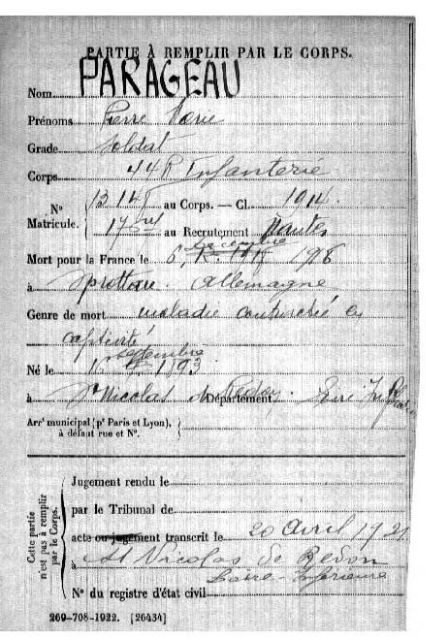 PARTIE À REMPLIR PAR LE CORPS.
Nom PARAGEAU
Prénoms Pierre Marie
Grade Soldat
Corps Infanterie
N° Matricule. au Corps. — Cl. 1914.
au Recrutement Nantes
Mort pour la France le 6, décembre 1918
à Sprottau Allemagne
Genre de mort maladie contractée en
captivité
Né le septembre 1893
à St Nicolas de Redon Département Loire Inférieure
Arrt municipal (pr Paris et Lyon),
à défaut rue et N°.
Cette partie n'est pas à remplir par le Corps.
Jugement rendu le
par le Tribunal de
acte ou jugement transcrit le 20 avril 1921
à St Nicolas de Redon
Loire-Inférieure
N° du registre d'état civil
269-708-1922. [26434]